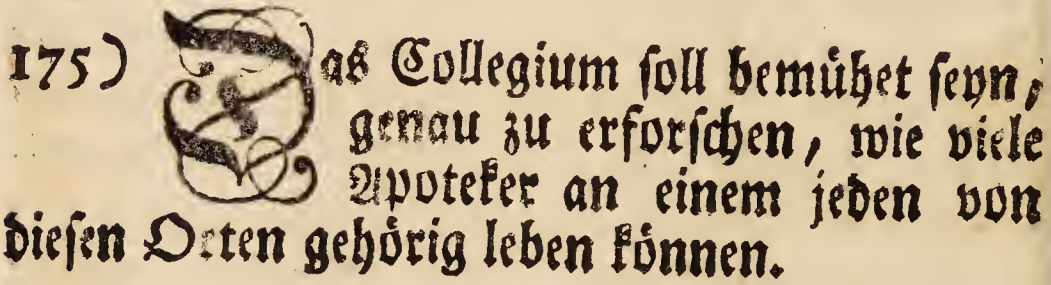 175) Das Collegium soll bemühet seyn,
genau zu erforschen, wie viele
Apoteker an einem jeden von
diesen Orten gehörig leben können.